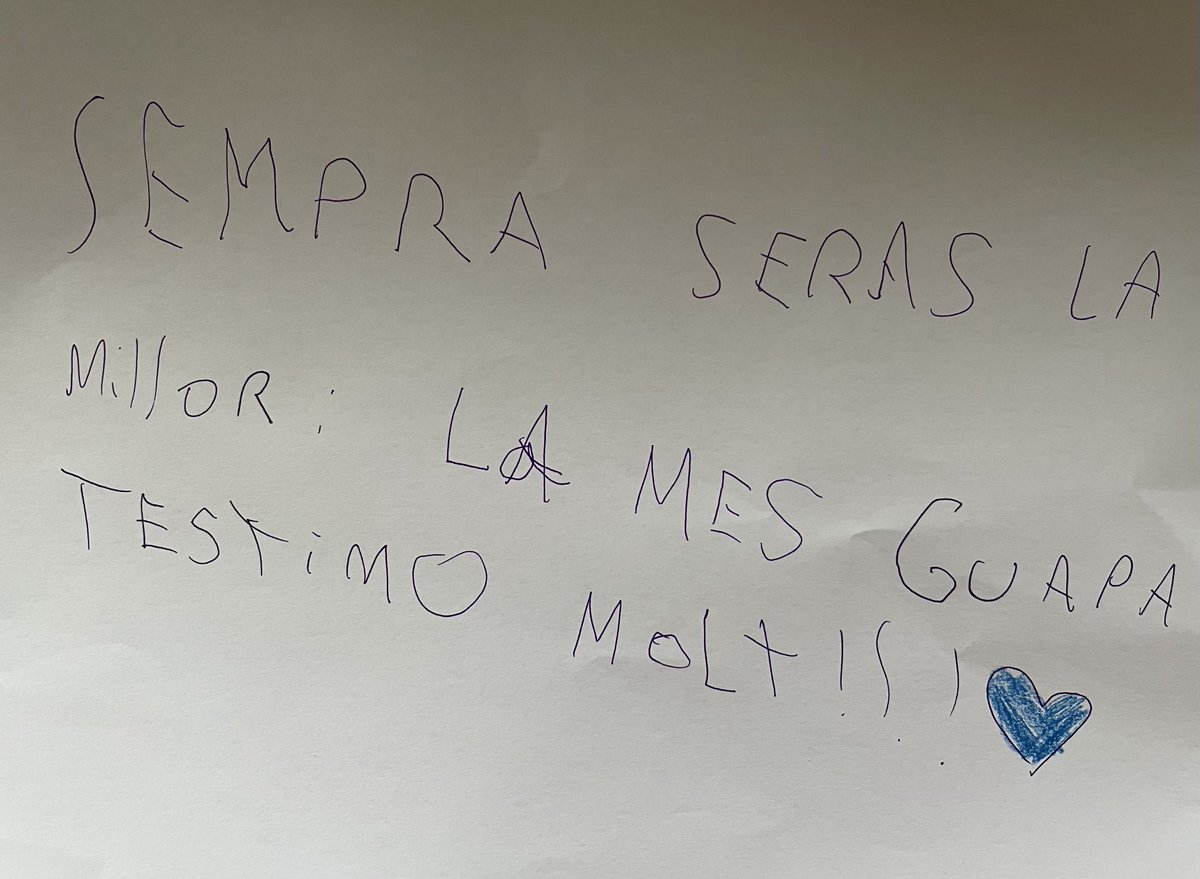 SEMPRA SERAS LA
MillOR; LA MES GUAPA
TESTiMO MOLT!!!